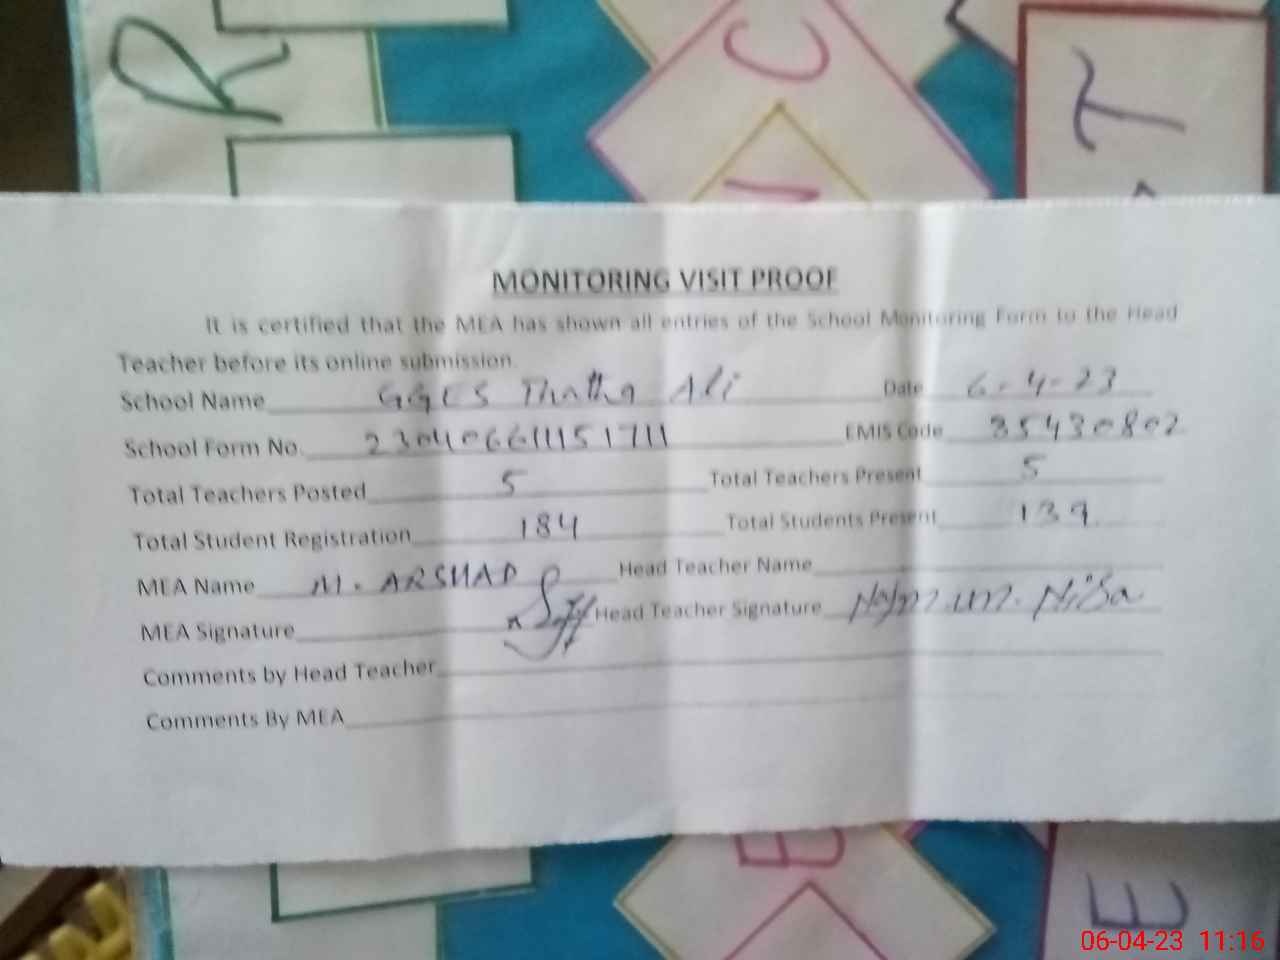 R
C
T
MONITORING VISIT PROOF
It is certified that the MEA has shown all entries of the School Monitoring Form to the Head
Teacher before its online submission.
School Name GGES Thatha Ali Date 6-4-23
School Form No. 230406611151711 EMIS Code 35430802
Total Teachers Posted 5 Total Teachers Present 5
Total Student Registration 184 Total Students Present 139
MEA Name M. ARSHAD Head Teacher Name
MEA Signature Head Teacher Signature Najm.un.Nisa
Comments by Head Teacher
Comments By MEA
E
06-04-23 11:16